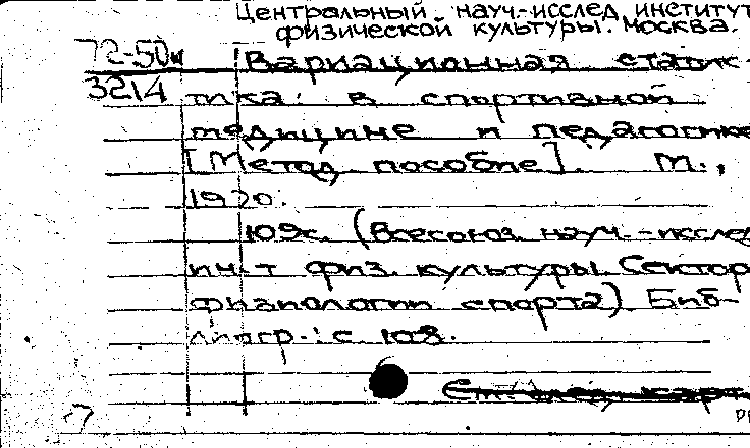 Центральный науч.-исслед. институт
физической культуры. Москва.
72-50м
Вариационная статис-
3214
тика в спортивной
медицине и педагогике
[Метод. пособие]. М.,
1970.
109с. (Всесоюз. науч.-исслед.
ин-т физ. культуры. Сектор
физиологии спорта) Биб-
лиогр.: с. 108.